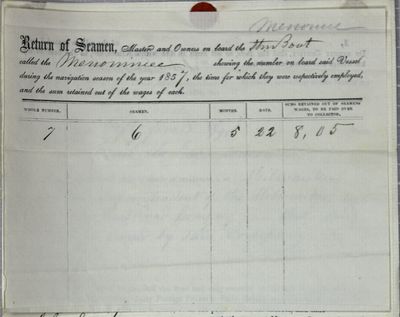 Menominee
Return of Seamen, Master and Owners on board the Stm Boat
called the Menominee shewing the number on board said Vessel
during the navigation season of the year 1857, the time for which they were respectively employed,
and the sum retained out of the wages of each.
WHOLE NUMBER. SEAMEN. MONTHS. DAYS. SUMS RETAINED OUT OF SEAMENS
WAGES, TO BE PAID OVER
TO COLLECTOR,
7 6 5 22 8,05